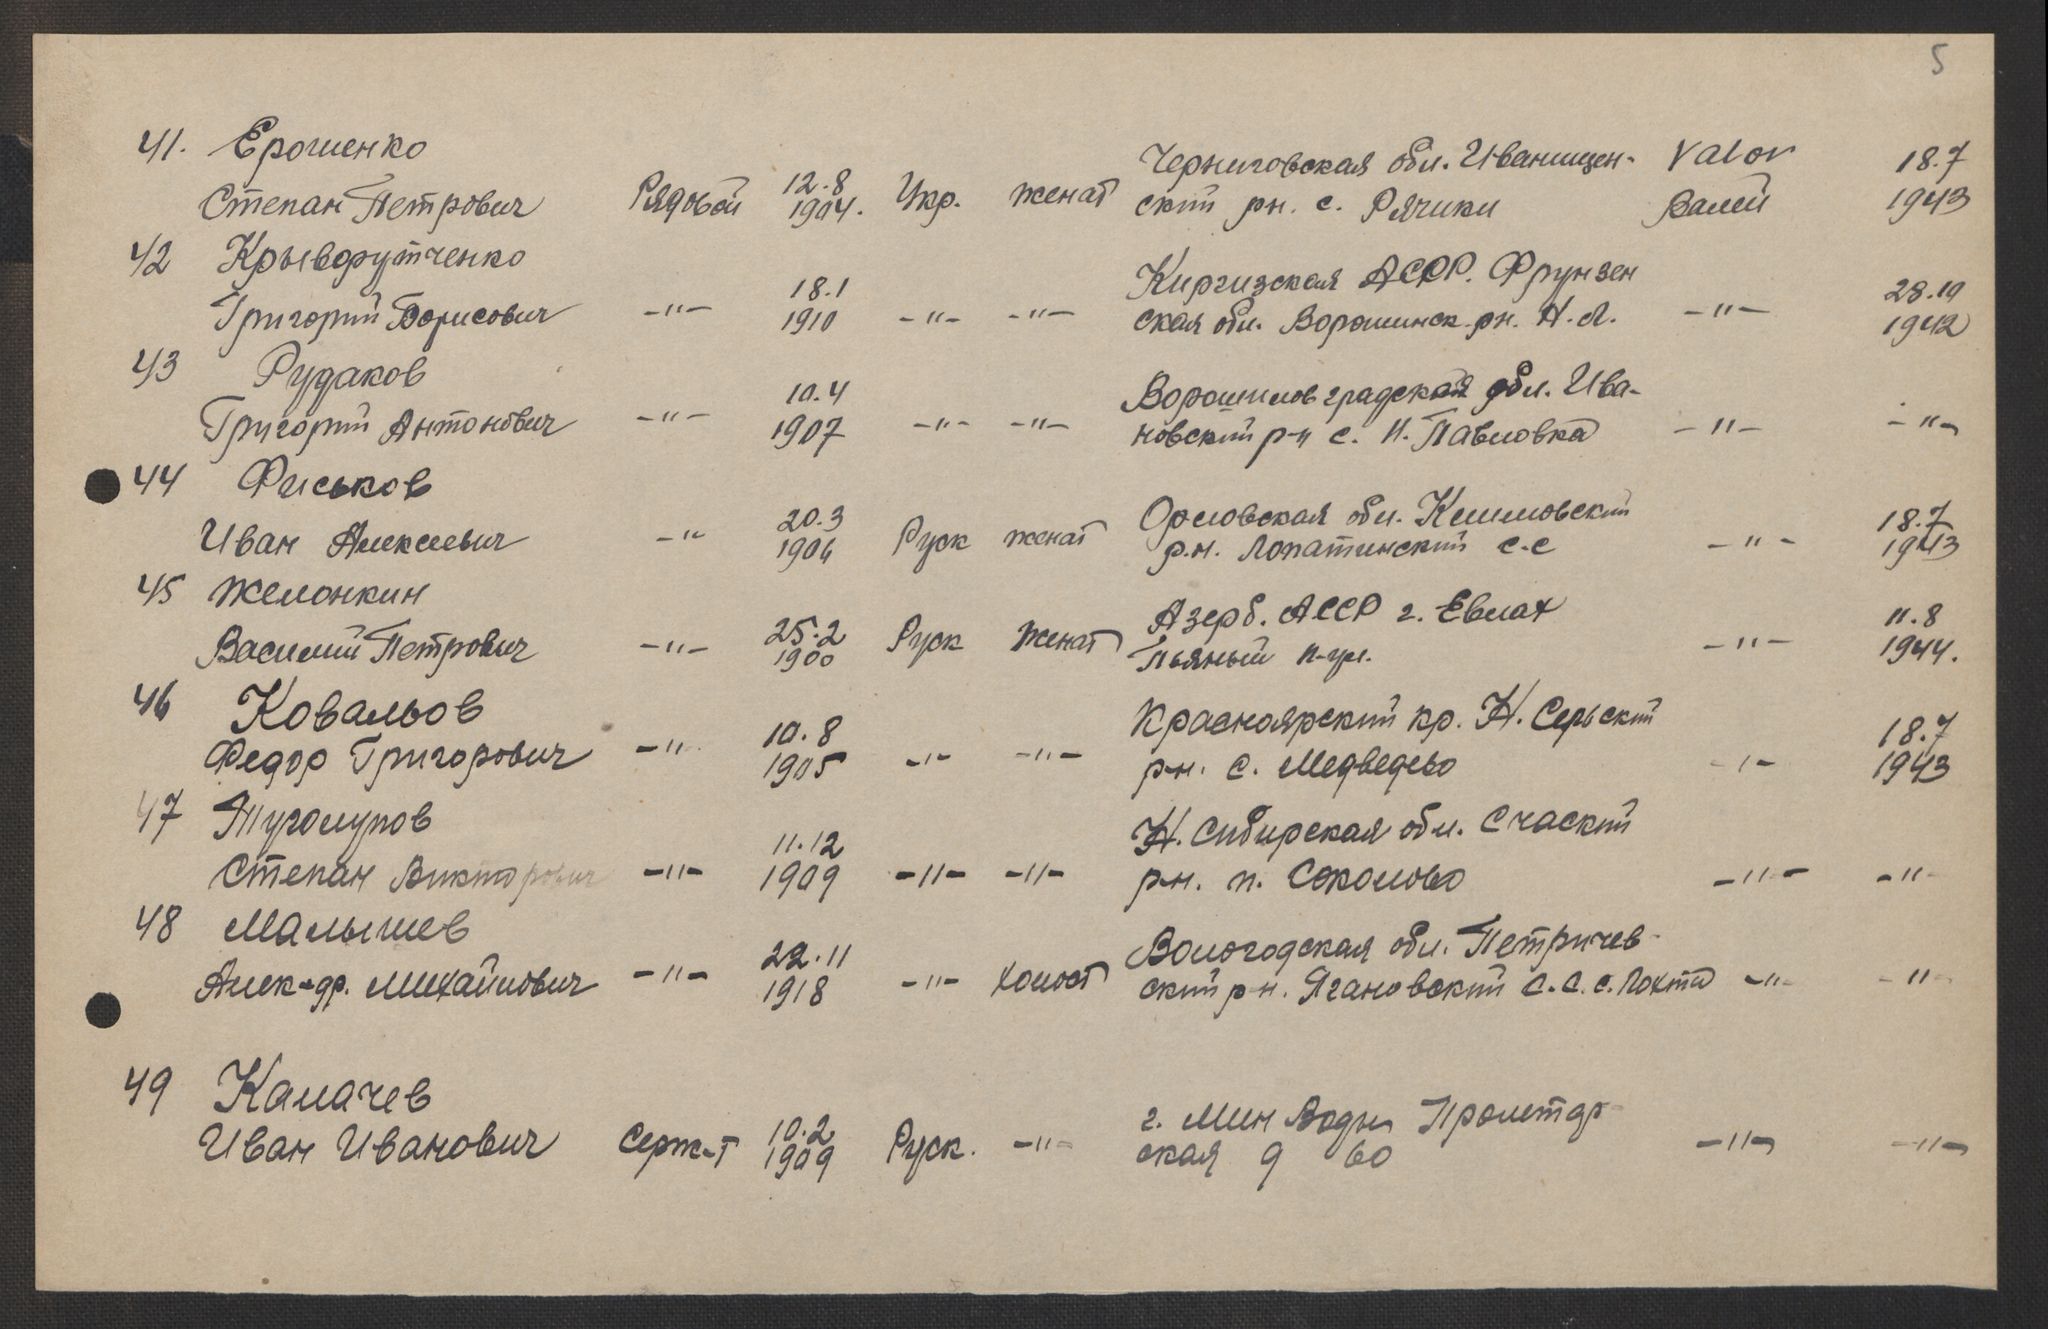 5
41. Ерошенко Черниговская обл. Иваницен- Valor 18.7
Степан Петрович Рядовой 12.8 1904. Укр. женат ский рн. с. Рячики Валей 1943
42 Крыворутченко Киргизская АССР. Фрунзен 28.10
Григорий Борисович -"- 18.1 1910 -"- -"- ская обл. Ворошинск. рн. Н.Л. -"- 1942
43 Рудаков Ворошиловградская обл. Ива-
Григорий Антонович -"- 10.4 1907 -"- -"- новский р-н с. И. Павловка -"- -"-
44 Фиськов Орловская обл. 18.7
Иван Алексеевич -" 20.3 1906 Руск женат р.н. Лопатинский с.с -"- 1943
45 Желонкин Азерб. АССР г. Евлах 11.8
Василий Петрович -"- 25.2 1900 Руск женат Пьяный п-ул. -"- 1944.
46 Ковальов Красноярский кр. Н. Серьский 18.7
Федор Григорович -"- 10.8 1905 -"- -"- р-н. с. Медведево -"- 1943
47 Туголуков Н. Сибирская обл. Счаский
Степан Викторович -"- 11.12 1909 -"- -"- р-н. п. Соколово -"- -"-
48 Малышев Вологодская обл. Петричев-
Алек-др. Михайлович -"- 22.11 1918 -"- холост ский р-н. Ягановский С.С. с. Лохта -"- -"-
49 Калачев г. Мин Воды Пролетар-
Иван Иванович Серж-т 10.2 1909 Руск. -"- ская 9 60 -"- -"-